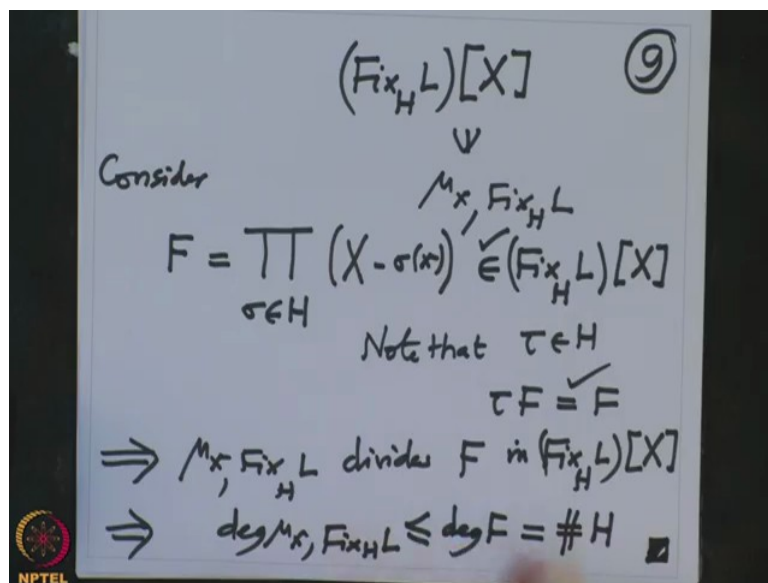 (Fix_H L)[X] ⑨
⋓
Consider
μ_x, Fix_H L
F = ∏_{σ∈H} (X - σ(x)) ∈ (Fix_H L)[X]
Note that τ ∈ H
τF = F
⇒ μ_x, Fix_H L divides F in (Fix_H L)[X]
⇒ deg μ_x, Fix_H L ≤ deg F = # H
NPTEL